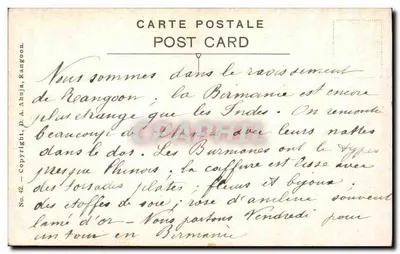 CARTE POSTALE
POST CARD
No. 42. — Copyright, D. A. Ahuja, Rangoon.
Nous sommes dans le ravissement
de Rangoon ; la Birmanie est encore
plus étrange que les Indes. On rencontre
beaucoup de avec leurs nattes
dans le dos. Les Burmones ont le type
presque Chinois ; la coiffure est lisse avec
des torsades ; fleurs et bijoux ;
des étoffes de soie ; rose d'aniline souvent
lamé d'or — Nous partons Vendredi pour
un tour en Birmanie